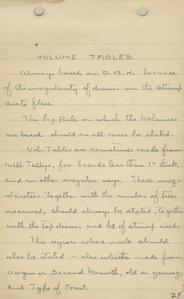 VOLUME TABLES.
Always based on D.B.H. because
of the irregularity of diam. on the stump
due to flare.
The Log Rule on which the volumes
are based should in all cases be stated.
Vol. Tables are sometimes made from
mill tallys, for boards less than 1" thick,
and in other irregular ways. These irreg-
ularities together with the number of trees
measured, should always be stated, together
with the top diam. and ht. of stump used.
The region where made should
also be stated - also whether made from
Virgin or Second Growth, old or young,
and Type of Forest.